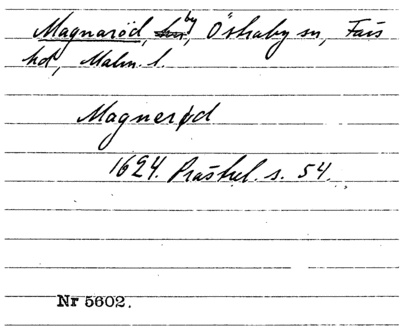 Magnaröd, by, Ö Straby sn, Färs
hd, Malm. l.
Magnerød
1624. Präs s. 54.
Nr 5602.